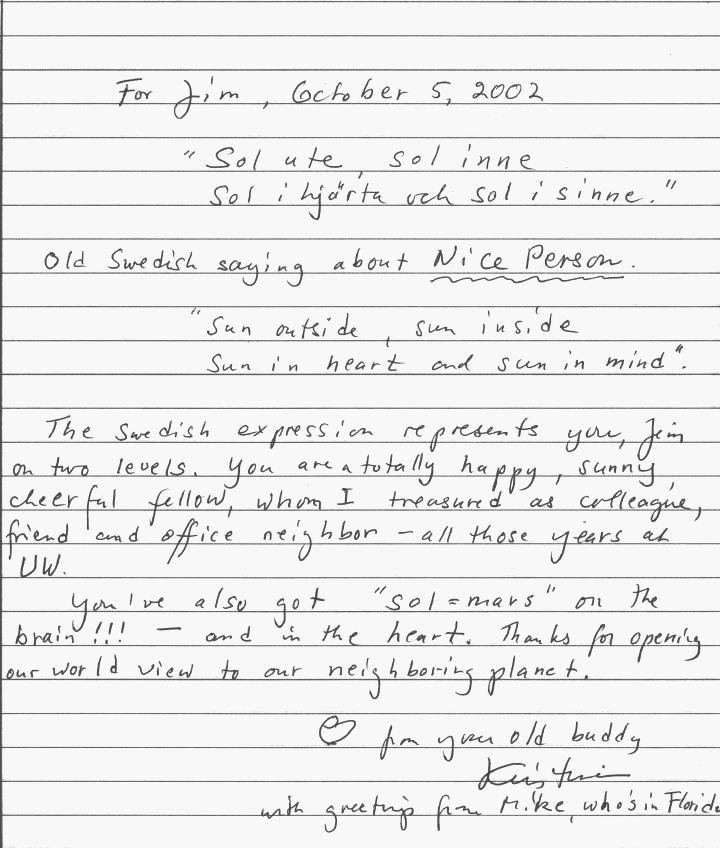 For Jim, October 5, 2002
"Sol ute, sol inne
Sol i hjärta och sol i sinne."
Old Swedish saying about Nice Person.
"Sun outside, sun inside
Sun in heart and sun in mind".
The Swedish expression represents you, Jim
on two levels. You are a totally happy, sunny,
cheerful fellow, whom I treasured as colleague,
friend and office neighbor – all those years at
UW.
You've also got "sol = mars" on the
brain!!! — and in the heart. Thanks for opening
our world view to our neighboring planet.
from your old buddy
with greetings from Mike, who's in Florida